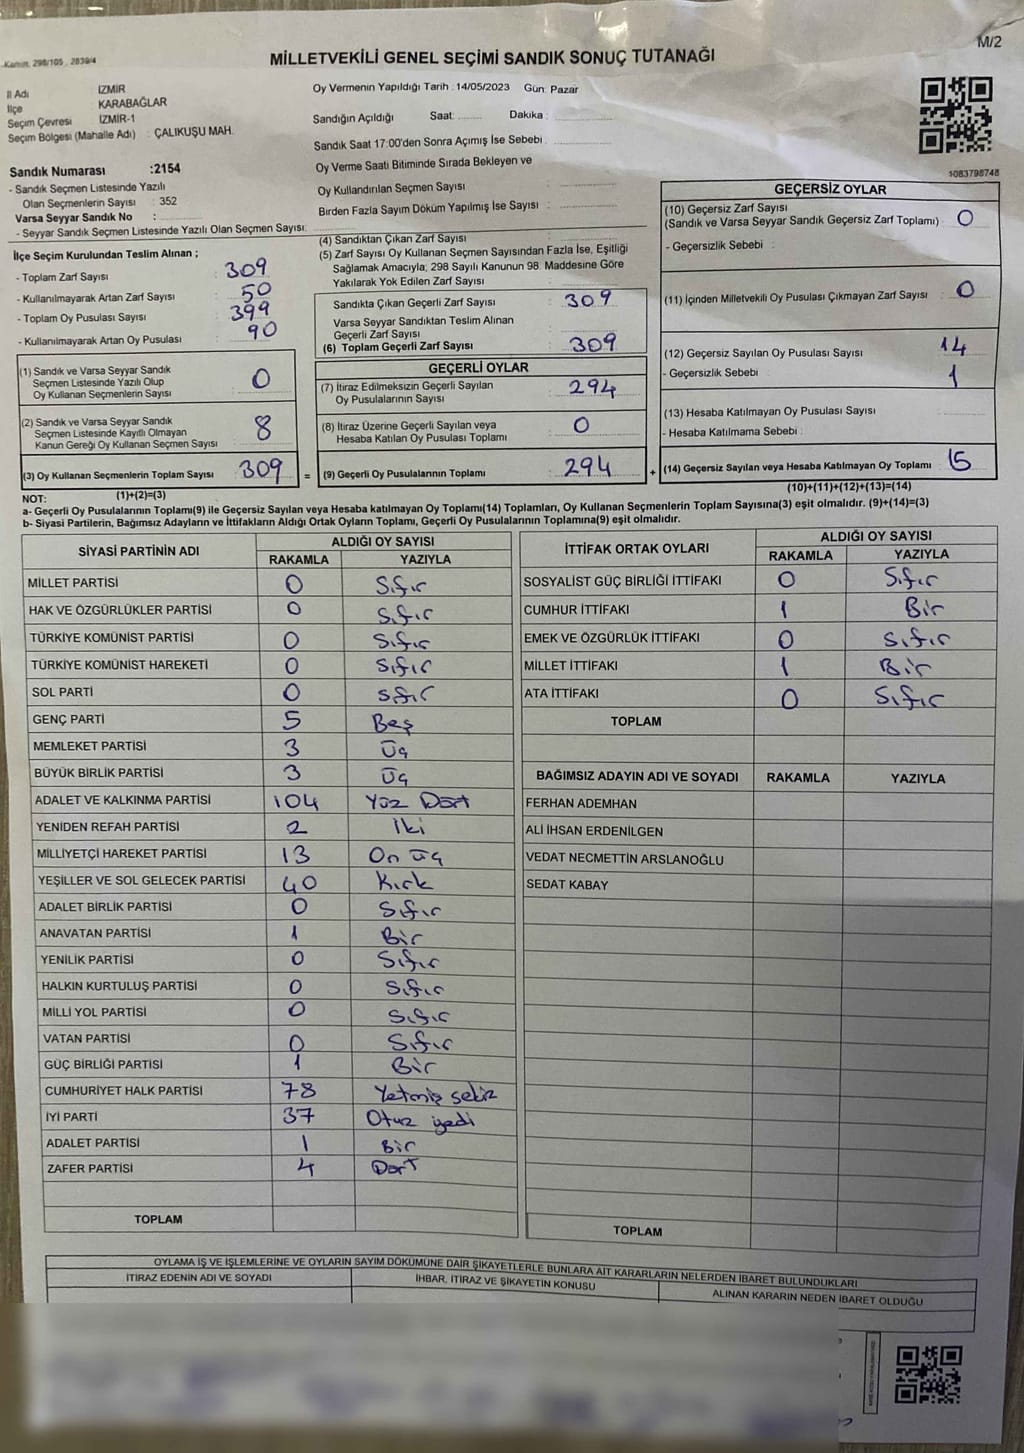 M/2
Kanun: 298/105 , 2839/4
MİLLETVEKİLİ GENEL SEÇİMİ SANDIK SONUÇ TUTANAĞI
İl Adı İZMİR
İlçe KARABAĞLAR
Seçim Çevresi İZMİR-1
Seçim Bölgesi (Mahalle Adı) : ÇALIKUŞU MAH.
Sandık Numarası :2154
- Sandık Seçmen Listesinde Yazılı
Olan Seçmenlerin Sayısı : 352
Varsa Seyyar Sandık No :
- Seyyar Sandık Seçmen Listesinde Yazılı Olan Seçmen Sayısı:
Oy Vermenin Yapıldığı Tarih : 14/05/2023 Gün: Pazar
Sandığın Açıldığı Saat: Dakika :
Sandık Saat 17:00'den Sonra Açımış İse Sebebi :
Oy Verme Saati Bitiminde Sırada Bekleyen ve
Oy Kullandırılan Seçmen Sayısı :
Birden Fazla Sayım Döküm Yapılmış İse Sayısı :
1083798748
İlçe Seçim Kurulundan Teslim Alınan ;
- Toplam Zarf Sayısı : 309
- Kullanılmayarak Artan Zarf Sayısı : 50
- Toplam Oy Pusulası Sayısı : 399
- Kullanılmayarak Artan Oy Pusulası : 90
(1) Sandık ve Varsa Seyyar Sandık
Seçmen Listesinde Yazılı Olup
Oy Kullanan Seçmenlerin Sayısı : 0
(2) Sandık ve Varsa Seyyar Sandık
Seçmen Listesinde Kayıtlı Olmayan
Kanun Gereği Oy Kullanan Seçmen Sayısı : 8
(3) Oy Kullanan Seçmenlerin Toplam Sayısı : 309 =
(4) Sandıktan Çıkan Zarf Sayısı :
(5) Zarf Sayısı Oy Kullanan Seçmen Sayısından Fazla İse, Eşitliği
Sağlamak Amacıyla; 298 Sayılı Kanunun 98. Maddesine Göre
Yakılarak Yok Edilen Zarf Sayısı :
Sandıkta Çıkan Geçerli Zarf Sayısı : 309
Varsa Seyyar Sandıktan Teslim Alınan
Geçerli Zarf Sayısı :
(6) Toplam Geçerli Zarf Sayısı : 309
GEÇERLİ OYLAR
(7) İtiraz Edilmeksizin Geçerli Sayılan
Oy Pusulalarının Sayısı : 294
(8) İtiraz Üzerine Geçerli Sayılan veya
Hesaba Katılan Oy Pusulası Toplamı : 0
(9) Geçerli Oy Pusulalarının Toplamı : 294 +
GEÇERSİZ OYLAR
(10) Geçersiz Zarf Sayısı
(Sandık ve Varsa Seyyar Sandık Geçersiz Zarf Toplamı) : 0
- Geçersizlik Sebebi :
(11) İçinden Milletvekili Oy Pusulası Çıkmayan Zarf Sayısı : 0
(12) Geçersiz Sayılan Oy Pusulası Sayısı : 14
- Geçersizlik Sebebi : 1
(13) Hesaba Katılmayan Oy Pusulası Sayısı :
- Hesaba Katılmama Sebebi :
(14) Geçersiz Sayılan veya Hesaba Katılmayan Oy Toplamı : 15
NOT: (1)+(2)=(3) (10)+(11)+(12)+(13)=(14)
a- Geçerli Oy Pusulalarının Toplamı(9) ile Geçersiz Sayılan veya Hesaba katılmayan Oy Toplamı(14) Toplamları, Oy Kullanan Seçmenlerin Toplam Sayısına(3) eşit olmalıdır. (9)+(14)=(3)
b- Siyasi Partilerin, Bağımsız Adayların ve İttifakların Aldığı Ortak Oyların Toplamı, Geçerli Oy Pusulalarının Toplamına(9) eşit olmalıdır.
SİYASİ PARTİNİN ADI ALDIĞI OY SAYISI
RAKAMLA YAZIYLA
MİLLET PARTİSİ 0 Sıfır
HAK VE ÖZGÜRLÜKLER PARTİSİ 0 Sıfır
TÜRKİYE KOMÜNİST PARTİSİ 0 Sıfır
TÜRKİYE KOMÜNİST HAREKETİ 0 Sıfır
SOL PARTİ 0 sıfır
GENÇ PARTİ 5 Beş
MEMLEKET PARTİSİ 3 Üç
BÜYÜK BİRLİK PARTİSİ 3 Üç
ADALET VE KALKINMA PARTİSİ 104 Yüz Dört
YENİDEN REFAH PARTİSİ 2 İki
MİLLİYETÇİ HAREKET PARTİSİ 13 On üç
YEŞİLLER VE SOL GELECEK PARTİSİ 40 Kırk
ADALET BİRLİK PARTİSİ 0 Sıfır
ANAVATAN PARTİSİ 1 Bir
YENİLİK PARTİSİ 0 Sıfır
HALKIN KURTULUŞ PARTİSİ 0 Sıfır
MİLLİ YOL PARTİSİ 0 Sıfır
VATAN PARTİSİ 0 Sıfır
GÜÇ BİRLİĞİ PARTİSİ 1 Bir
CUMHURİYET HALK PARTİSİ 78 Yetmiş sekiz
İYİ PARTİ 37 Otuz yedi
ADALET PARTİSİ 1 Bir
ZAFER PARTİSİ 4 Dört
TOPLAM
İTTİFAK ORTAK OYLARI ALDIĞI OY SAYISI
RAKAMLA YAZIYLA
SOSYALİST GÜÇ BİRLİĞİ İTTİFAKI 0 Sıfır
CUMHUR İTTİFAKI 1 Bir
EMEK VE ÖZGÜRLÜK İTTİFAKI 0 Sıfır
MİLLET İTTİFAKI 1 Bir
ATA İTTİFAKI 0 Sıfır
TOPLAM
BAĞIMSIZ ADAYIN ADI VE SOYADI RAKAMLA YAZIYLA
FERHAN ADEMHAN
ALİ İHSAN ERDENİLGEN
VEDAT NECMETTİN ARSLANOĞLU
SEDAT KABAY
TOPLAM
OYLAMA İŞ VE İŞLEMLERİNE VE OYLARIN SAYIM DÖKÜMÜNE DAİR ŞİKAYETLERLE BUNLARA AİT KARARLARIN NELERDEN İBARET BULUNDUKLARI
İTİRAZ EDENİN ADI VE SOYADI İHBAR, İTİRAZ VE ŞİKAYETİN KONUSU ALINAN KARARIN NEDEN İBARET OLDUĞU